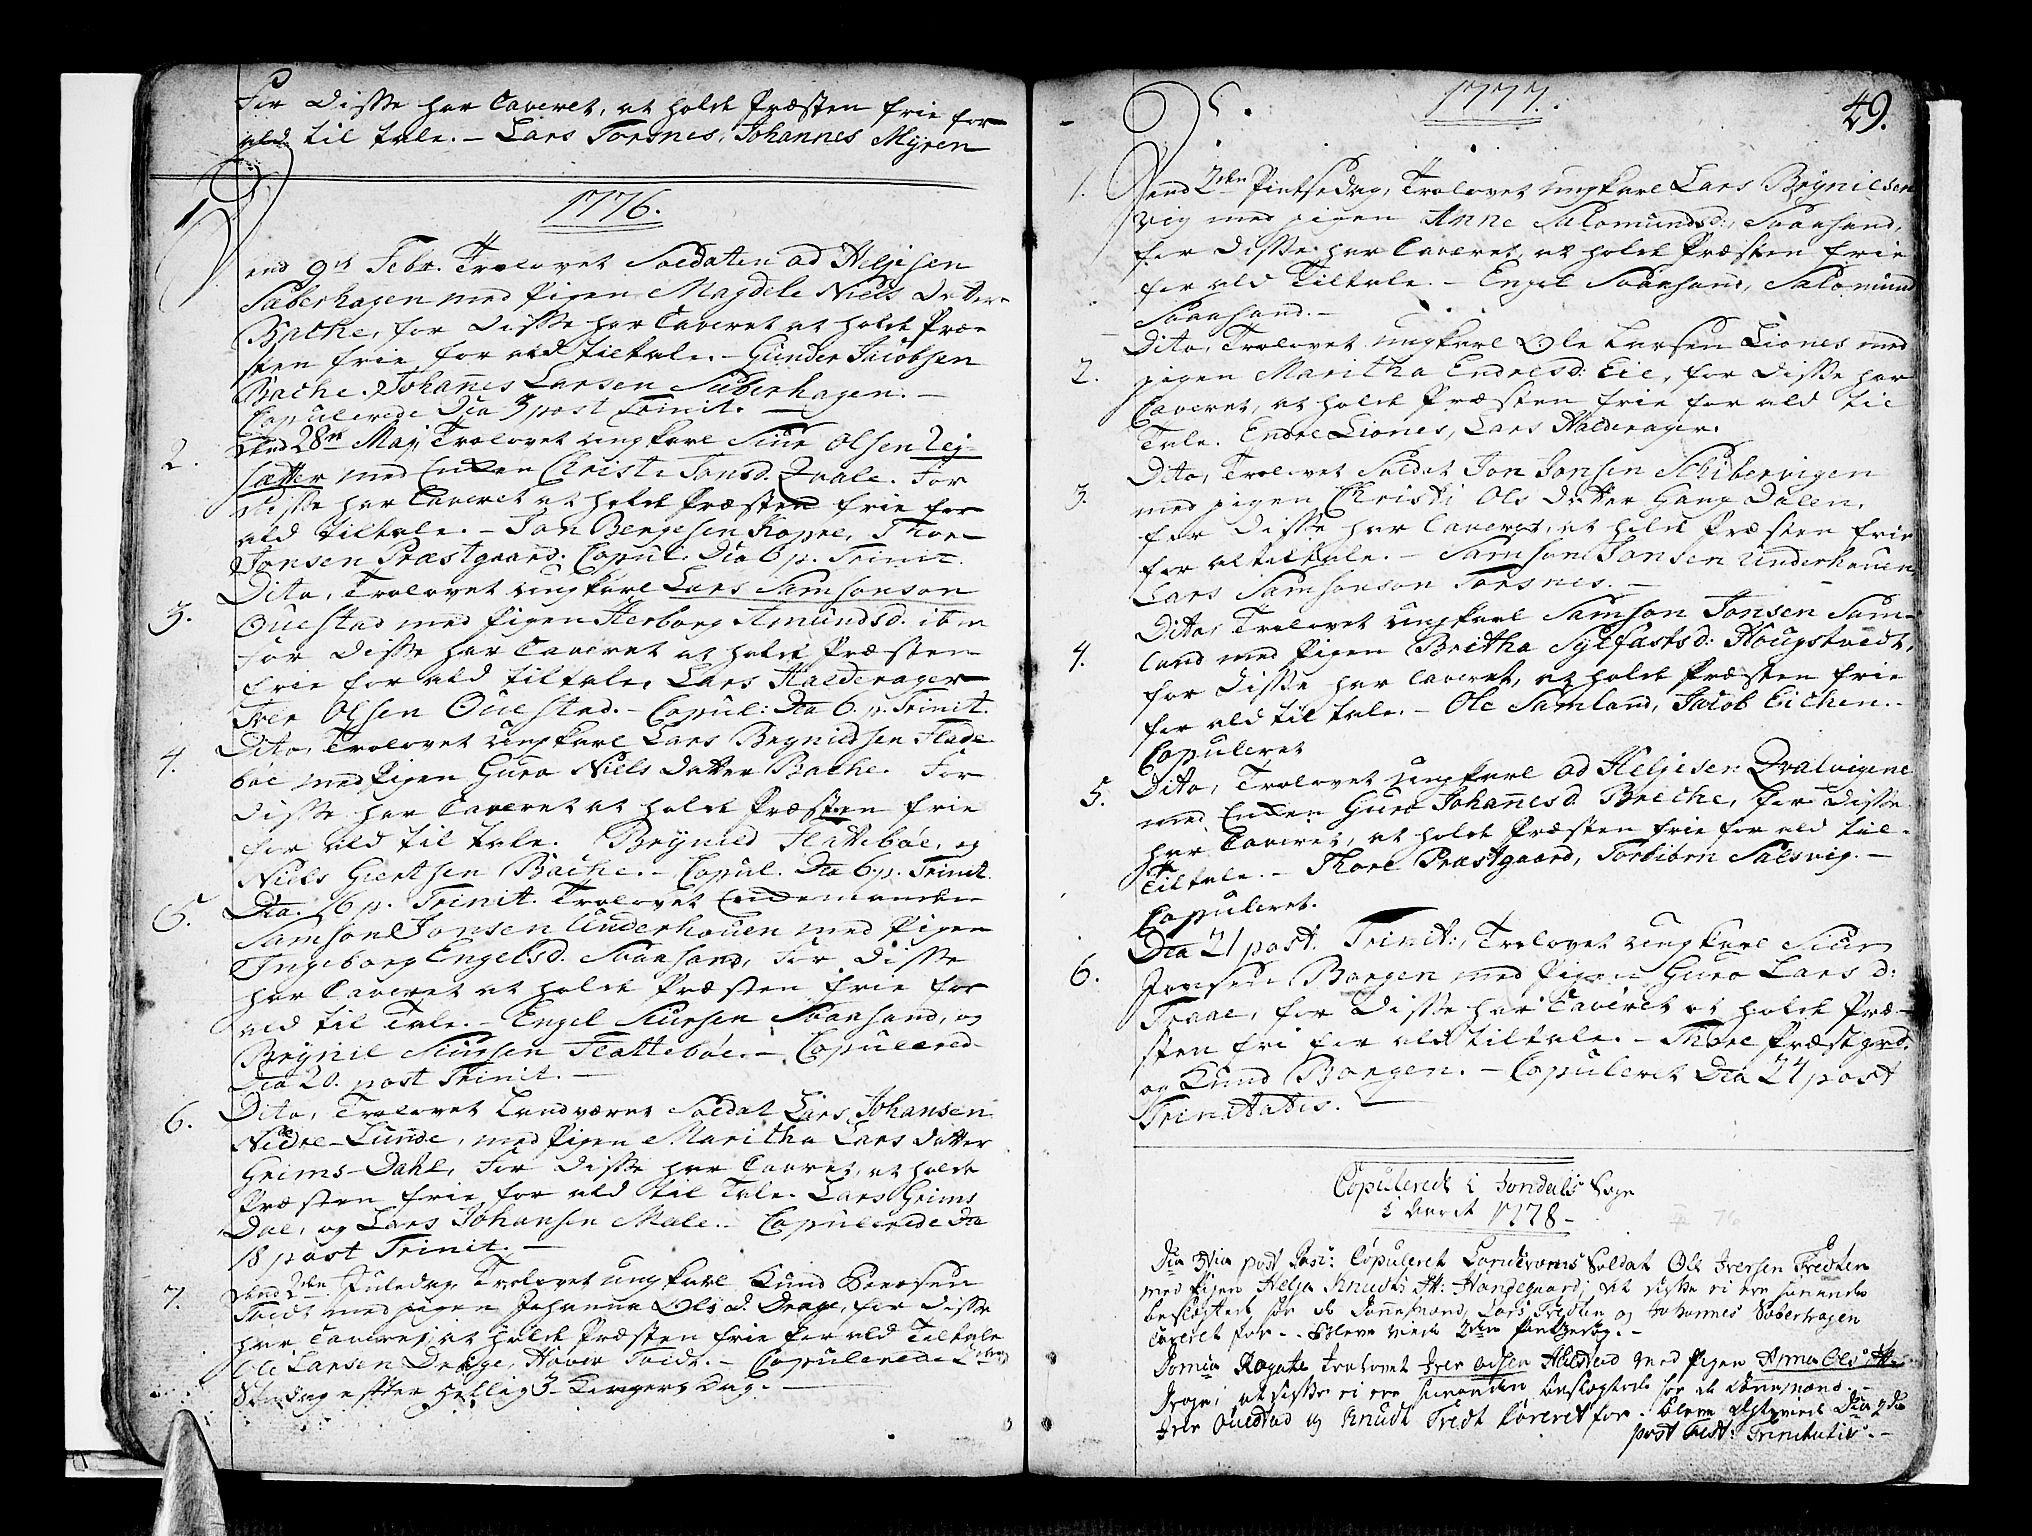 For Disse har Caveret, at holde Præsten frie for
ald til tale. – Lars Torsnes, Johannes Myren
1776.
1. Dend 9de Febr. Trolovet Soldaten Ad Heljesen
Saberhagen med Pigen Magdele Niels Datter
Bache, for Disse har Caveret at holde Præ-
sten frie for ald tiltale. – Gunder Jacobsen
Bache. Johanes Larsen Saberhagen. –
Copulerede Dca 3 post Trinit. –
2. Dend 28de Maj Trolovet ungkarl Siur Olsen
sætter med Enken Christi Jonsd. Qvale. For
Disse har Caveret at holde Præsten frie for
ald tiltale. – Jon Bergesen Kopre, Thore
Jonsen Præstgaard. Copul: Dca 6 p. Trinit.
3. Dito, Trolovet ungkarl Lars Samsonson
Ouestad med Pigen Herborg Amundsd. ibm
for Disse har Caveret at holde Præsten
frie for ald tiltale, Lars Halderager
Iver Olsen Ouestad. – Copul: Dca 6. p. Trinit.
4. Dito, Trolovet ungkarl Lars Brynildsen Flade-
bøe med Pigen Guro Niels Datter Bache. For
Disse har Caveret at holde Præsten frie
for ald til tale. Brynild Flattebøe, og
Niels Giertsen Bache. – Copul. Dca 6 p. Trinit.
5. Dca. 16 p. Trinit. Trolovet Enkemanden
Samson Jonsen Underhouen med Pigen
Ingeborg Engelsd. Svansand, for Disse
har Caveret at holde Præsten frie for
ald til Tale. – Engel Siursen Svaasand, og
Brynil Siursen Flattebøe. – Copulered
Dca 20. post Trinit. –
6. Dito, Trolovet Landværns Soldat Lars Johansen
Nedre-Lunde, med Pigen Maritha Lars Datter
Grims-Dahl, for Disse har Caveret, at holde
Præsten frie for ald til Tale. Lars Grims
Dal, og Lars Johansen Male. – Copulerede Dca
18 post Trinit. –
7. Dend 2den Juledag Trolovet ungkarl Knud
med pigen Johanna Ols d. Drage, for Disse
har Caveret, at holde Præsten frie for ald Tiltale
Ole Larsen Drage, – Copulerede 2den
Søndag efter Hellig 3 Kongers Dag. –
1777.
49.
1. Dend 2den Pintsedag, Trolovet ungkarl Lars Brynilsen
Vig med pigen Anne Salomunds d:, Svaasand,
for Disse har Caveret, at holde Præsten frie
for ald Tiltale. – Engel Svaasand, Salomund
Svaasand. –
2. Dito, Trolovet ungkarl Ole Larsen Liones med
pigen Maritha Endresd: Eie, for Disse har
Caveret, at holde Præsten frie for ald til
Tale. Endre Liones, Lars Halderager.
3. Dito, Trolovet Soldat Jon Jonsen Schibervigen
med pigen Christi Ols Datter Gang Dalen,
for Disse har Caveret, at holde Præsten frie
for al tiltale. – Samson Jonsen Underhouen
Lars Samsonson Torsnes. –
4. Dito, Trolovet ungkarl Samson Jonsen Sam-
land med Pigen Britha Sylfastsd: Hougstvedt,
for Disse har Caveret, at holde Præsten frie
for ald til tale. – Ole Samland, Jacob Eichen. –
Copuleret
5. Dito, Trolovet ungkarl Ad Heljesen Qvalvigene
med Enken Guro Johanesd. Breche, for Disse
har Caveret, at holde Præsten frie for ald til-
tiltale. – Thore Præstgaard, Torbiørn Salsvig. –
Copuleret.
6. Dca 21 post. Trinit:, Trolovet ungkarl Siur
Jonsen Bargen med Pigen Guro Lars d:
Traae, for Disse har Caveret at holde Præ-
sten fri for ald tiltale. – Thore Præstgrd.
og Knud Bargen. – Copuleret Dca 24 post
Trinitatis. –
Copulerede i Jondals Sogn
i Aaret 1778 –
76
Dca 3tia post Pasc: Copuleret Landværns Soldat Ole Iversen Tredten
med Pigen Helga Knuds Dt: Handegaard; at disse ei ere hinanden
beslægtede, for de Sognemænd, Lars Tredten og Johannes Saberhagen
Caveret for. – Bleve viede 2den Pintzedag. –
Domca Rogate Trolovet Iver Olsen med Pigen Anna Ols Dt:
Drage; at disse ei ere hinanden beslægtede for de Sognemænd –
Iver Ouestad og Knudt Tredt Caveret for. Bleve viede Dca 2da
post Fest: Trinitatis. –